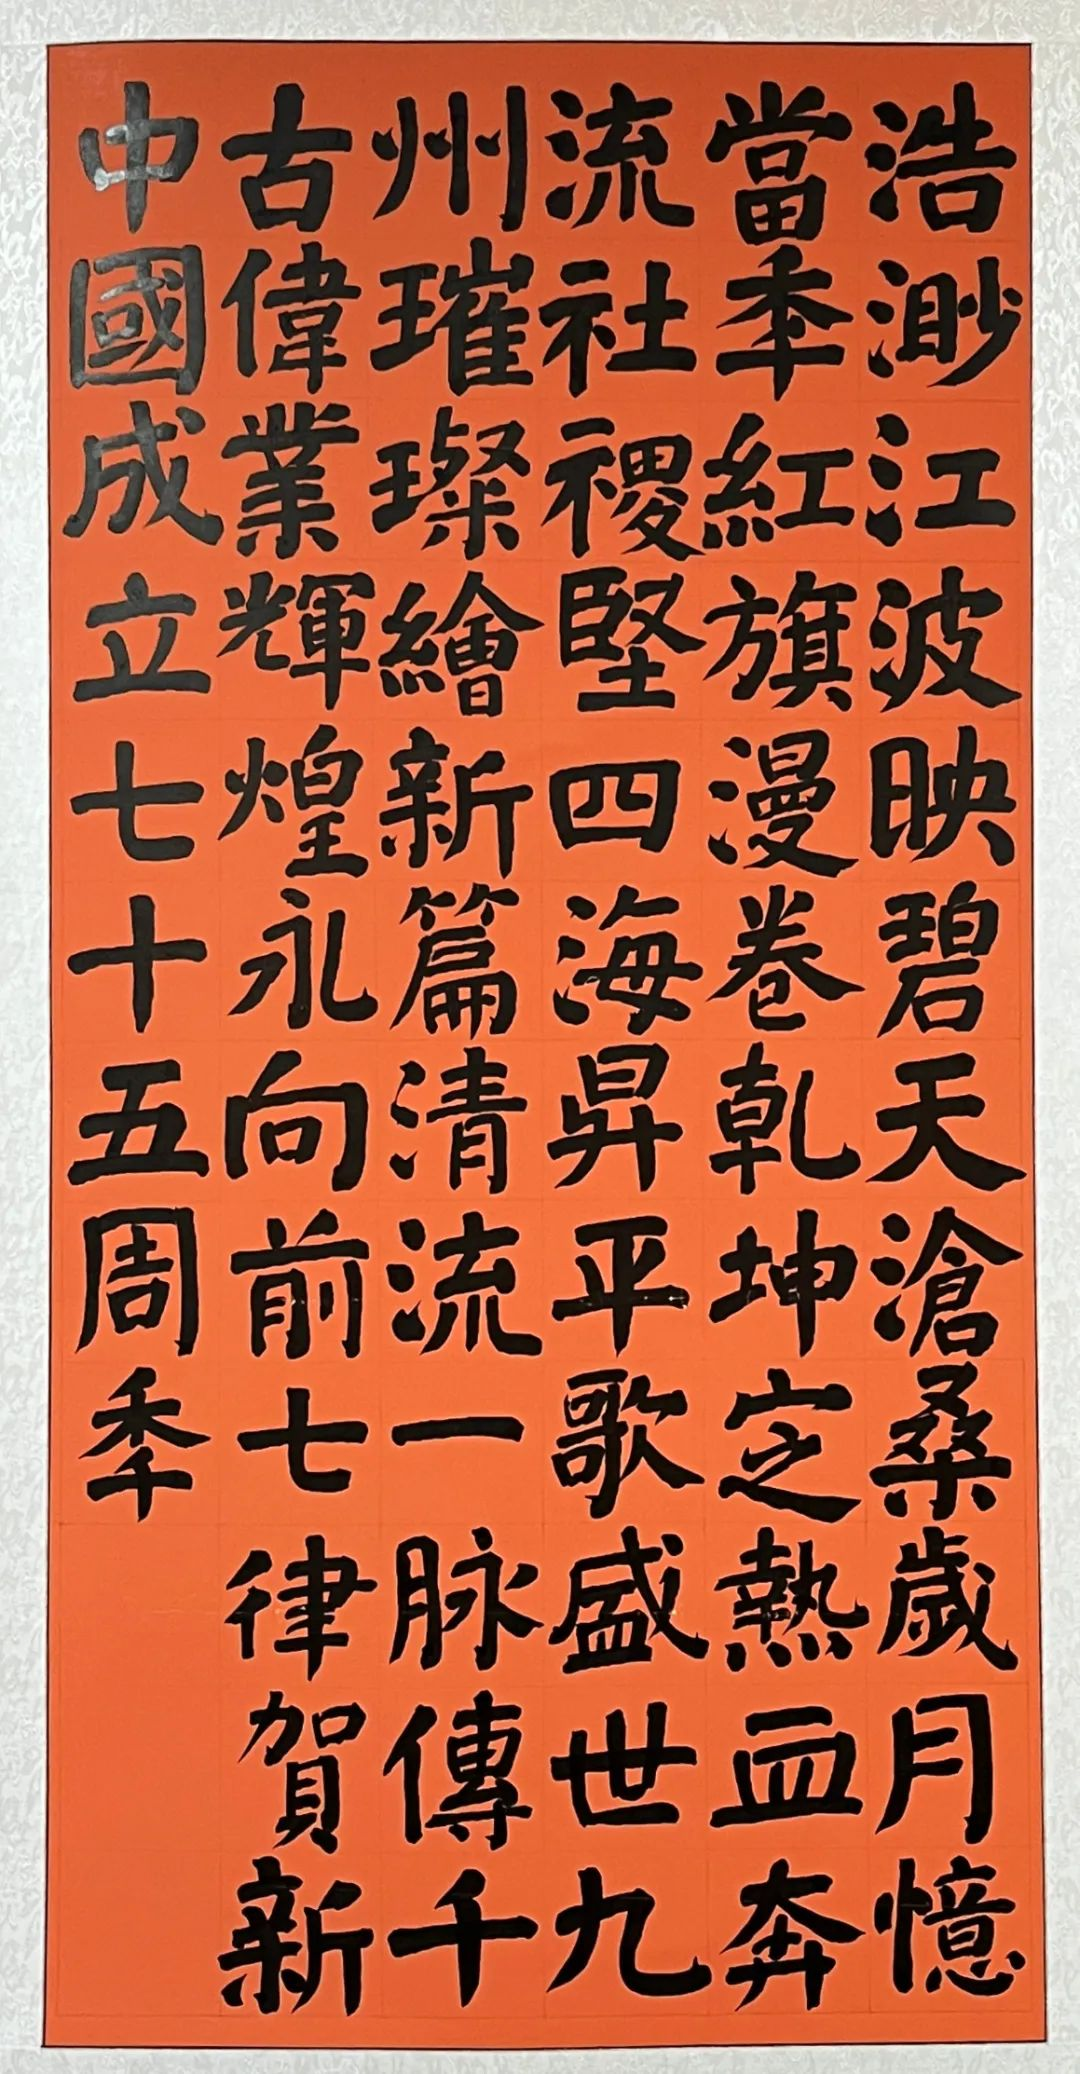 浩渺江波映碧天滄桑歲月憶
當年紅旗漫卷乾坤定熱血奔
流社稷堅四海昇平歌盛世九
州璀璨繪新篇清流一脉傳千
古偉業輝煌永向前七律賀新
中國成立七十五周年